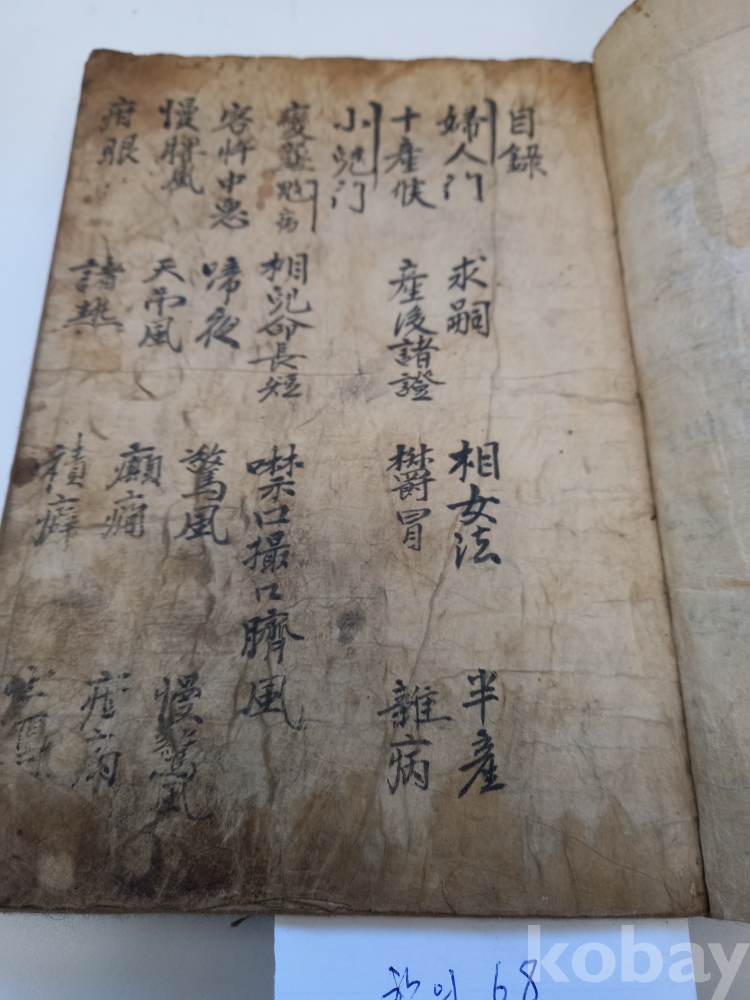 目錄
婦人門 求嗣 相女法 半産
十産候 産後諸證 欝冒 雜病
小兒門
變蒸兠病 相兒命長短 噤口撮口臍風
客忤中惡 啼夜 驚風 慢驚風
慢脾風 天吊風 癲癎
疳眼 諸熱 積癖
kobay
한의 68